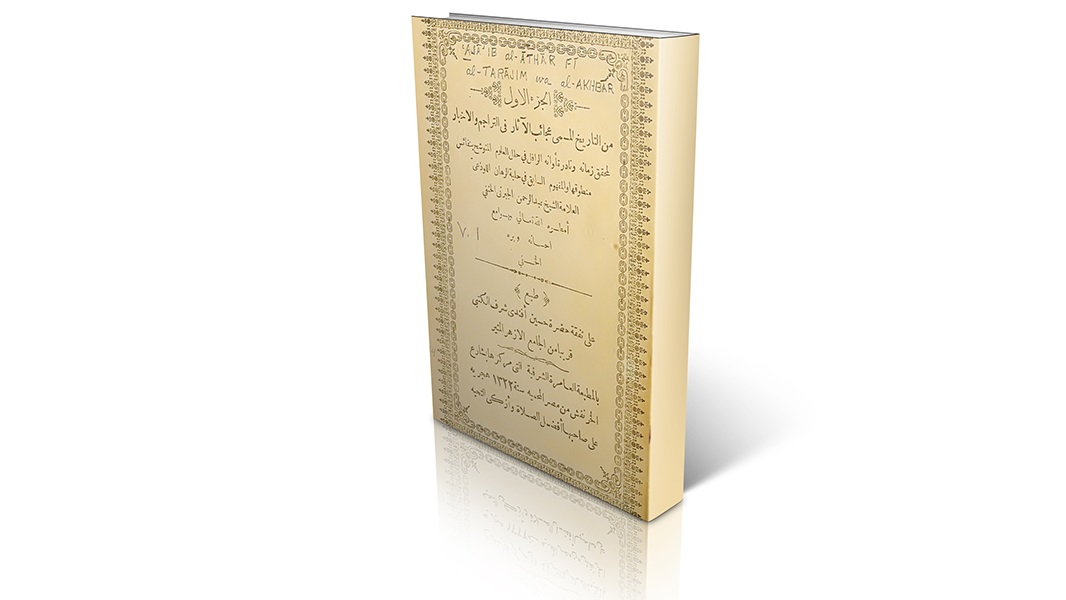 'AJĀ'IB al-ĀTHĀR FĪ
al-TARĀJIM wa al-AKHBĀR
الجزء الاول
من التاريخ المسمى عجائب الآثار فى التراجم والاخبار
لمحقق زمانه ونادرة أوانه الرافل فى حلل العلوم المتوشح بنفائس
منطوقها والمفهوم السابق فى حلبة الرهان اللوذعى
العلامة الشيخ عبد الرحمن الجبرتى الحنفى
أمطره الله تعالى بهوامع
احسانه وبره
الخفى
١ ٧٠
﴿ طبع ﴾
على نفقة حضرة حسين أفندى شرف الكتبى
قريبا من الجامع الازهر المنير
بالمطبعة العامرة الشرفية التى مركزها بشارع
الخرنفش من مصر المحميه سنة ١٣٢٢ هجريه
على صاحبها أفضل الصلاة وأزكى التحيه